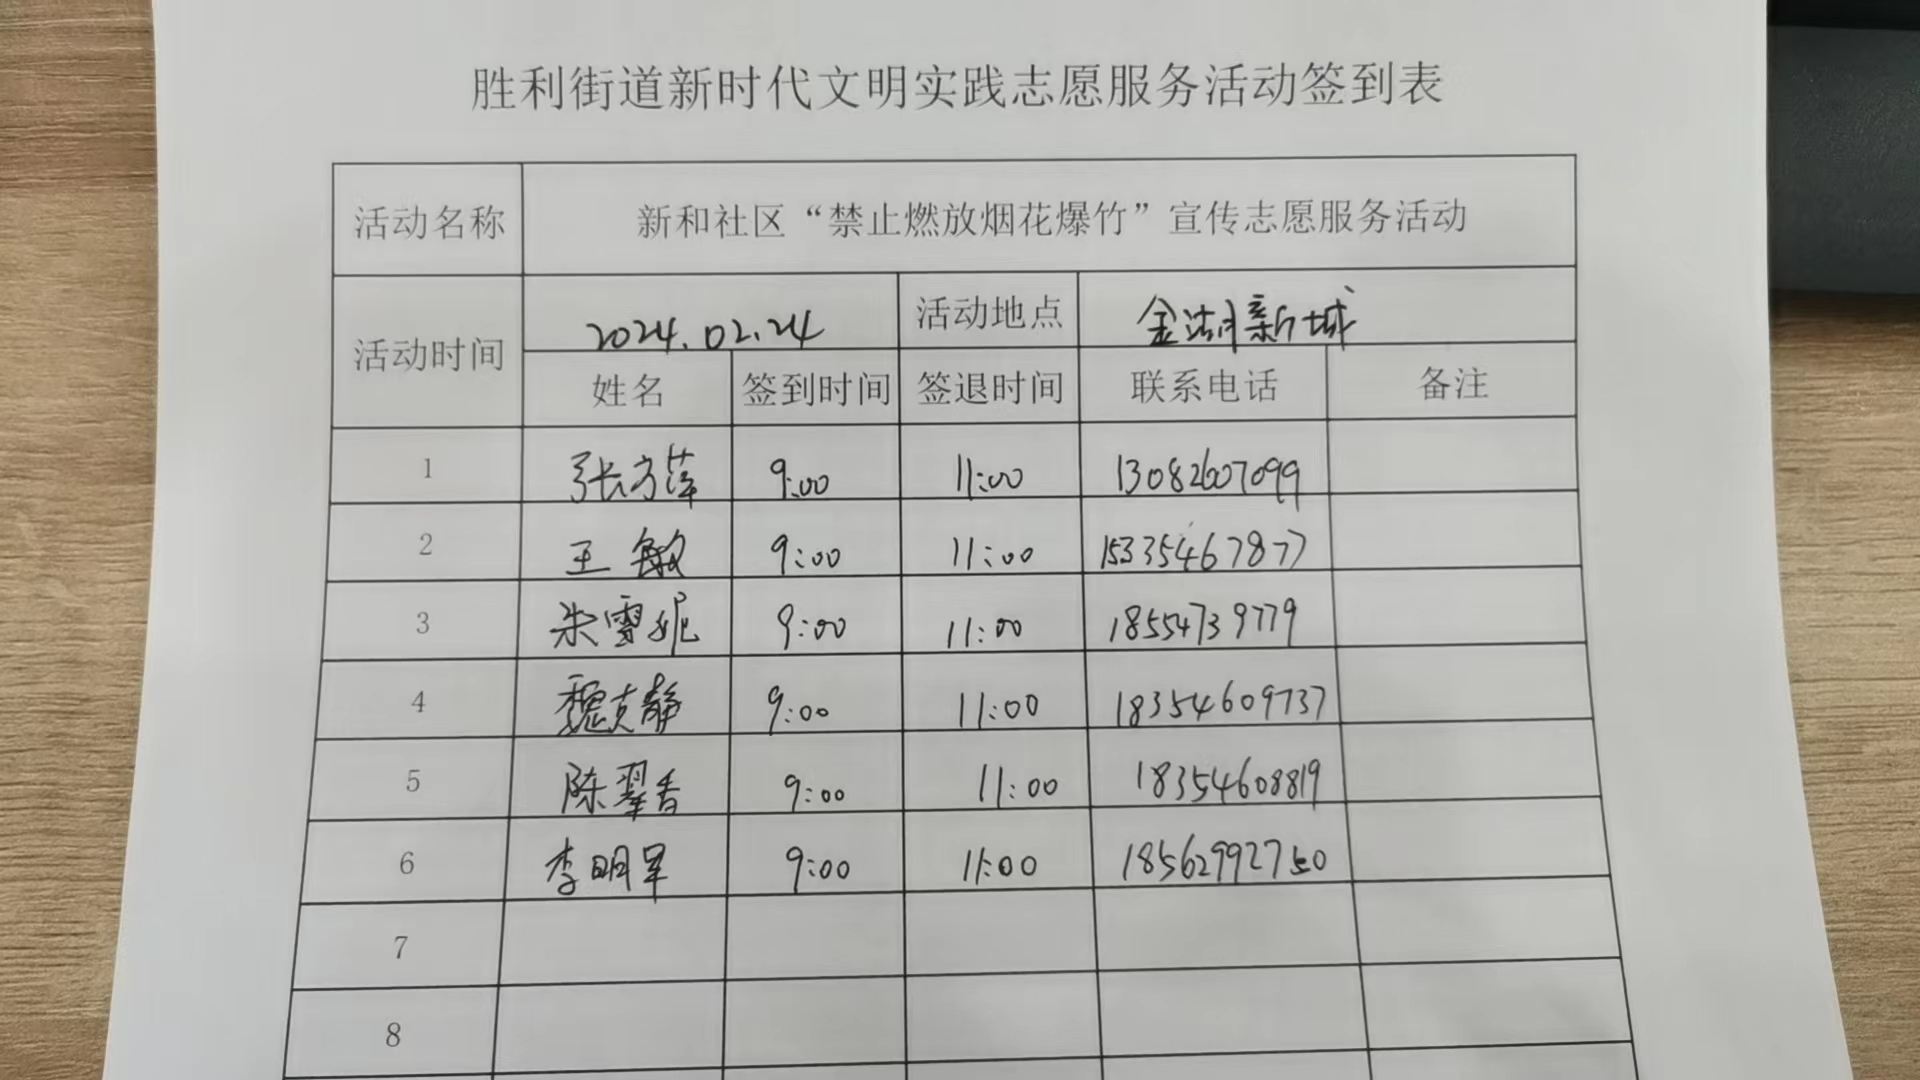 胜利街道新时代文明实践志愿服务活动签到表
活动名称 新和社区“禁止燃放烟花爆竹”宣传志愿服务活动
活动时间 2024.02.24 活动地点 金湖新城
姓名 签到时间 签退时间 联系电话 备注
1 张方萍 9:00 11:00 13082607099
2 王敏 9:00 11:00 15335467877
3 朱雪妮 9:00 11:00 18554739779
4 魏克静 9:00 11:00 18354609737
5 陈翠香 9:00 11:00 18354608819
6 李明军 9:00 11:00 18562992750
7
8